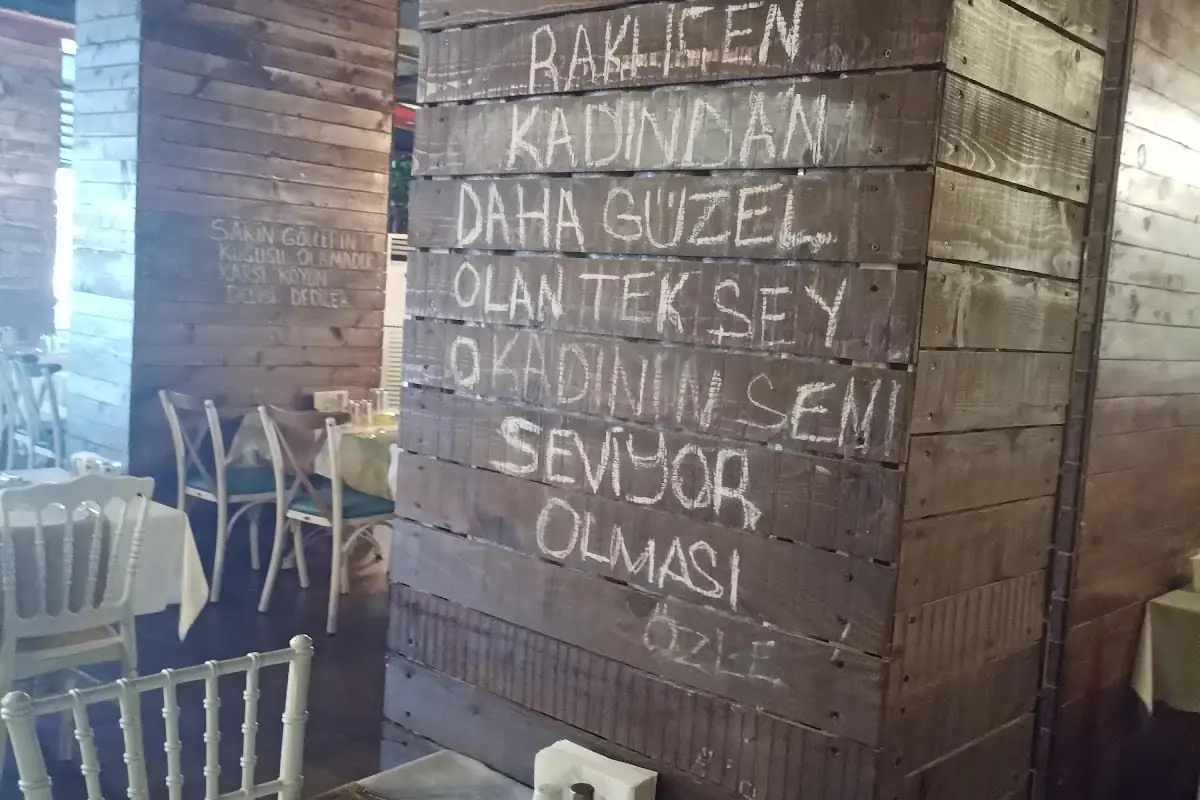 RAKI İÇEN
KADINDAN
DAHA GÜZEL
OLAN TEK ŞEY
O KADININ SENİ
SEVİYOR
OLMASI
ÖZLE
SAKİN GÖLLERİN
KUĞUSU OLAMADIK
KARŞI KOYUN
DEDİLER